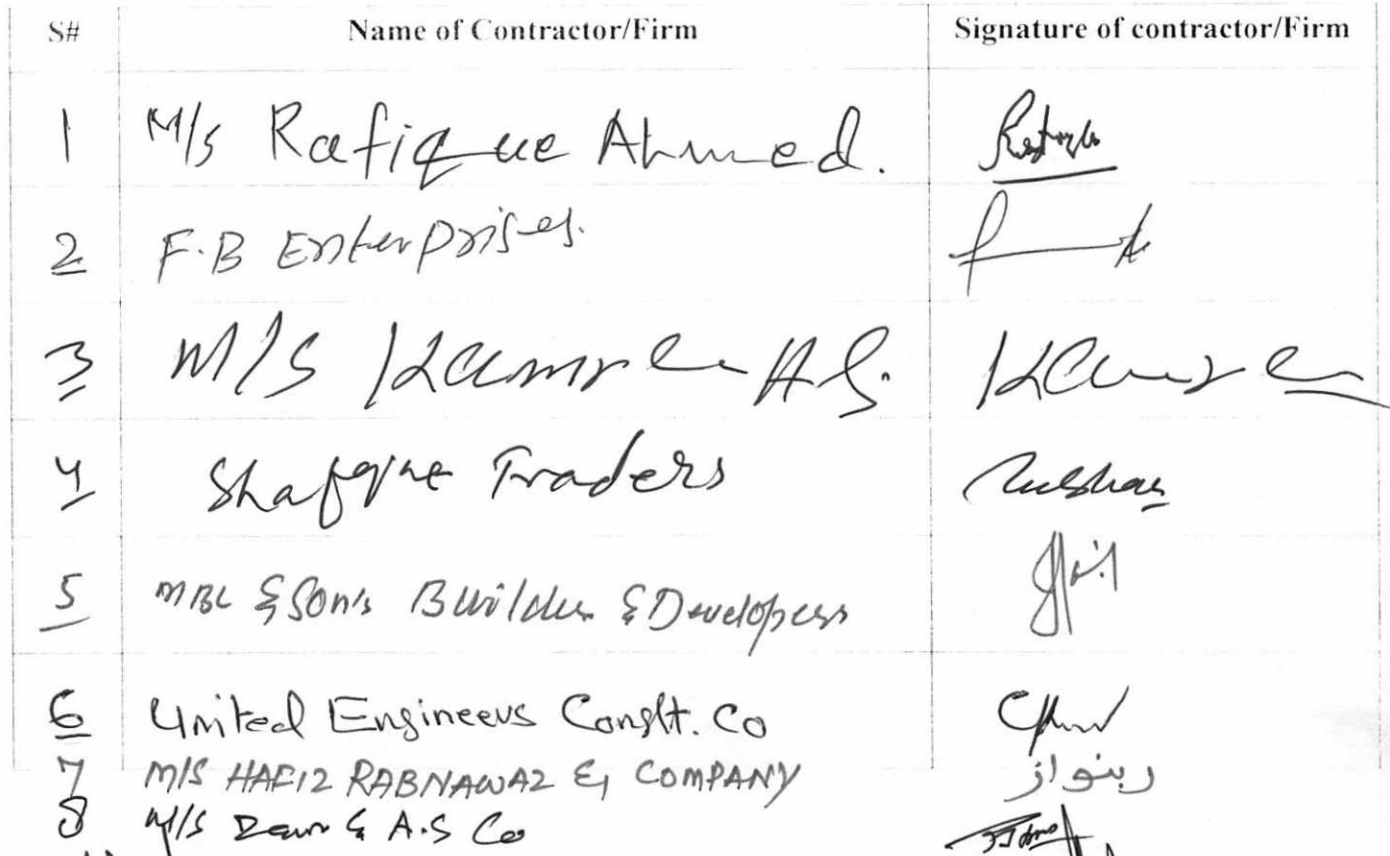 S# Name of Contractor/Firm Signature of contractor/Firm
1 M/s Rafique Ahmed.
2 F.B Enterprises.
3 M/S Kamran A.G. Kamran
4 Shafique Traders
5 MBL & Son's Builder & Developers
6 United Engineers Conslt. Co
7 M/S HAFIZ RABNAWAZ & COMPANY ربنواز
8 M/s & A.S Co